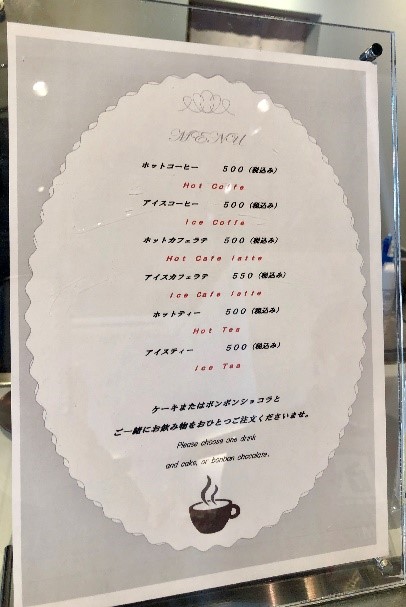 MENU
ホットコーヒー 500(税込み)
Hot Coffe
アイスコーヒー 500(税込み)
Ice Coffe
ホットカフェラテ 500(税込み)
Hot Cafe latte
アイスカフェラテ 550(税込み)
Ice Cafe latte
ホットティー 500(税込み)
Hot Tea
アイスティー 500(税込み)
Ice Tea
ケーキまたはボンボンショコラと
ご一緒にお飲み物をおひとつご注文くださいませ。
Please choose one drink
and cake, or bonbon chocolate.